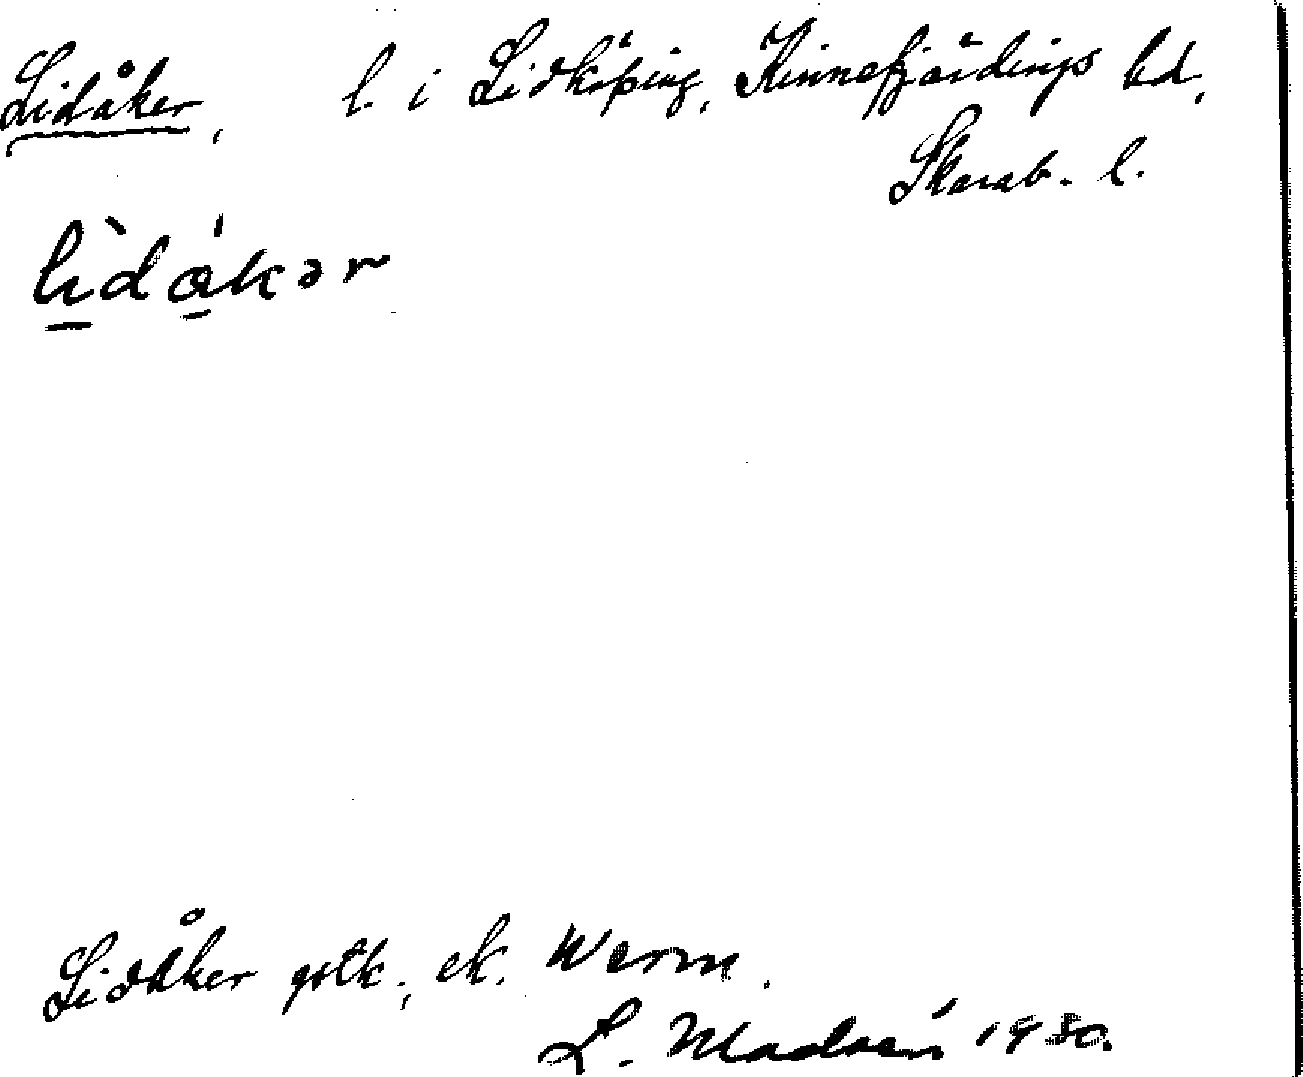 Lidåker, l. i Lidköping, Kinnefjärdings hd,
Skarab. l.
lìdákər
Lidåker gstk., ek. Werm.
L. 1930.